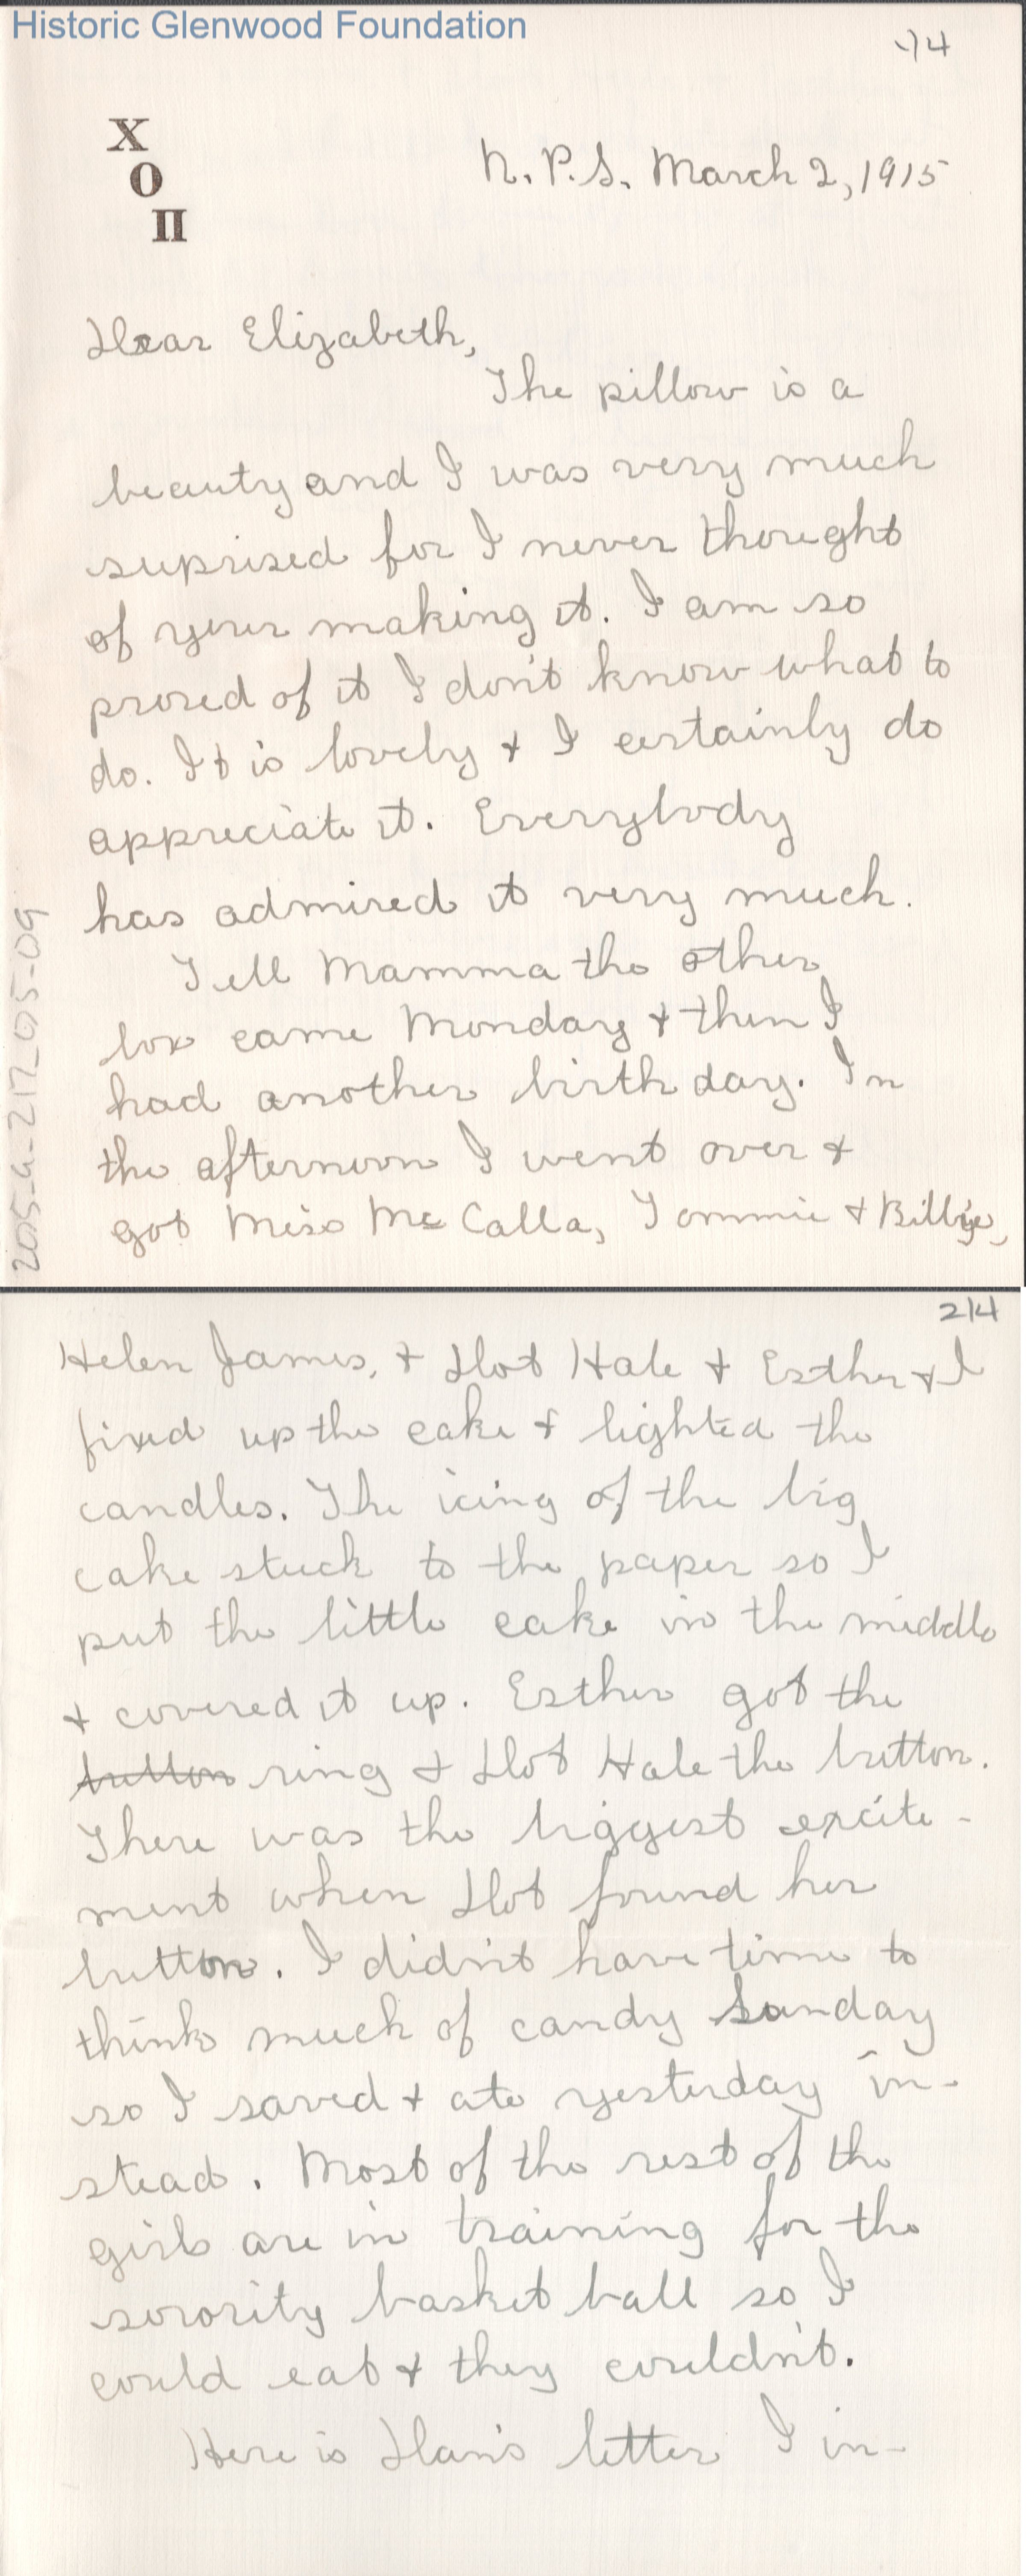 Historic Glenwood Foundation
14
X
O
II
N.P.S. March 2, 1915
Dear Elizabeth,
The pillow is a
beauty and I was very much
suprised for I never thought
of your making it. I am so
proud of it I don't know what to
do. It is lovely + I certainly do
appreciate it. Everybody
has admired it very much.
Tell Mamma the other
box came Monday + then I
had another birthday. In
the afternoon I went over +
got Miss McCalla, Tommie + Billye,
2015-4-217_05-09
214
Helen James, + Dot Hale + Esther + I
fixed up the cake + lighted the
candles. The icing of the big
cake stuck to the paper so I
put the little cake in the middle
+ covered it up. Esther got the
button ring + Dot Hale the button.
There was the biggest excite-
ment when Dot found her
button. I didn't have time to
think much of candy Sunday
so I saved + ate yesterday in-
stead. Most of the rest of the
girls are in training for the
sorority basket ball so I
could eat + they couldn't.
Here is Dan's letter I in-